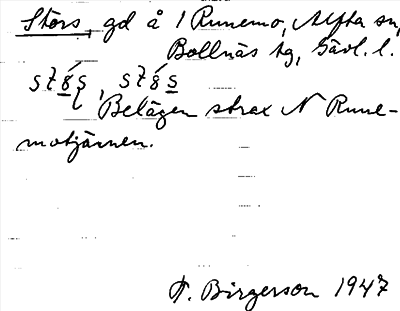 Störs, gd å 1 Runemo, Alfta sn,
Bollnäs tg, Gävl. l.
Belägen strax N Rune-
motjärnen.
F. Birgerson 1947